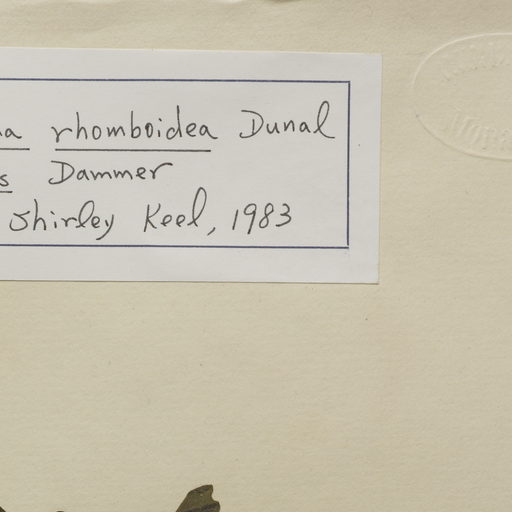 a rhomboidea Dunal
s Dammer
Shirley Keel, 1983